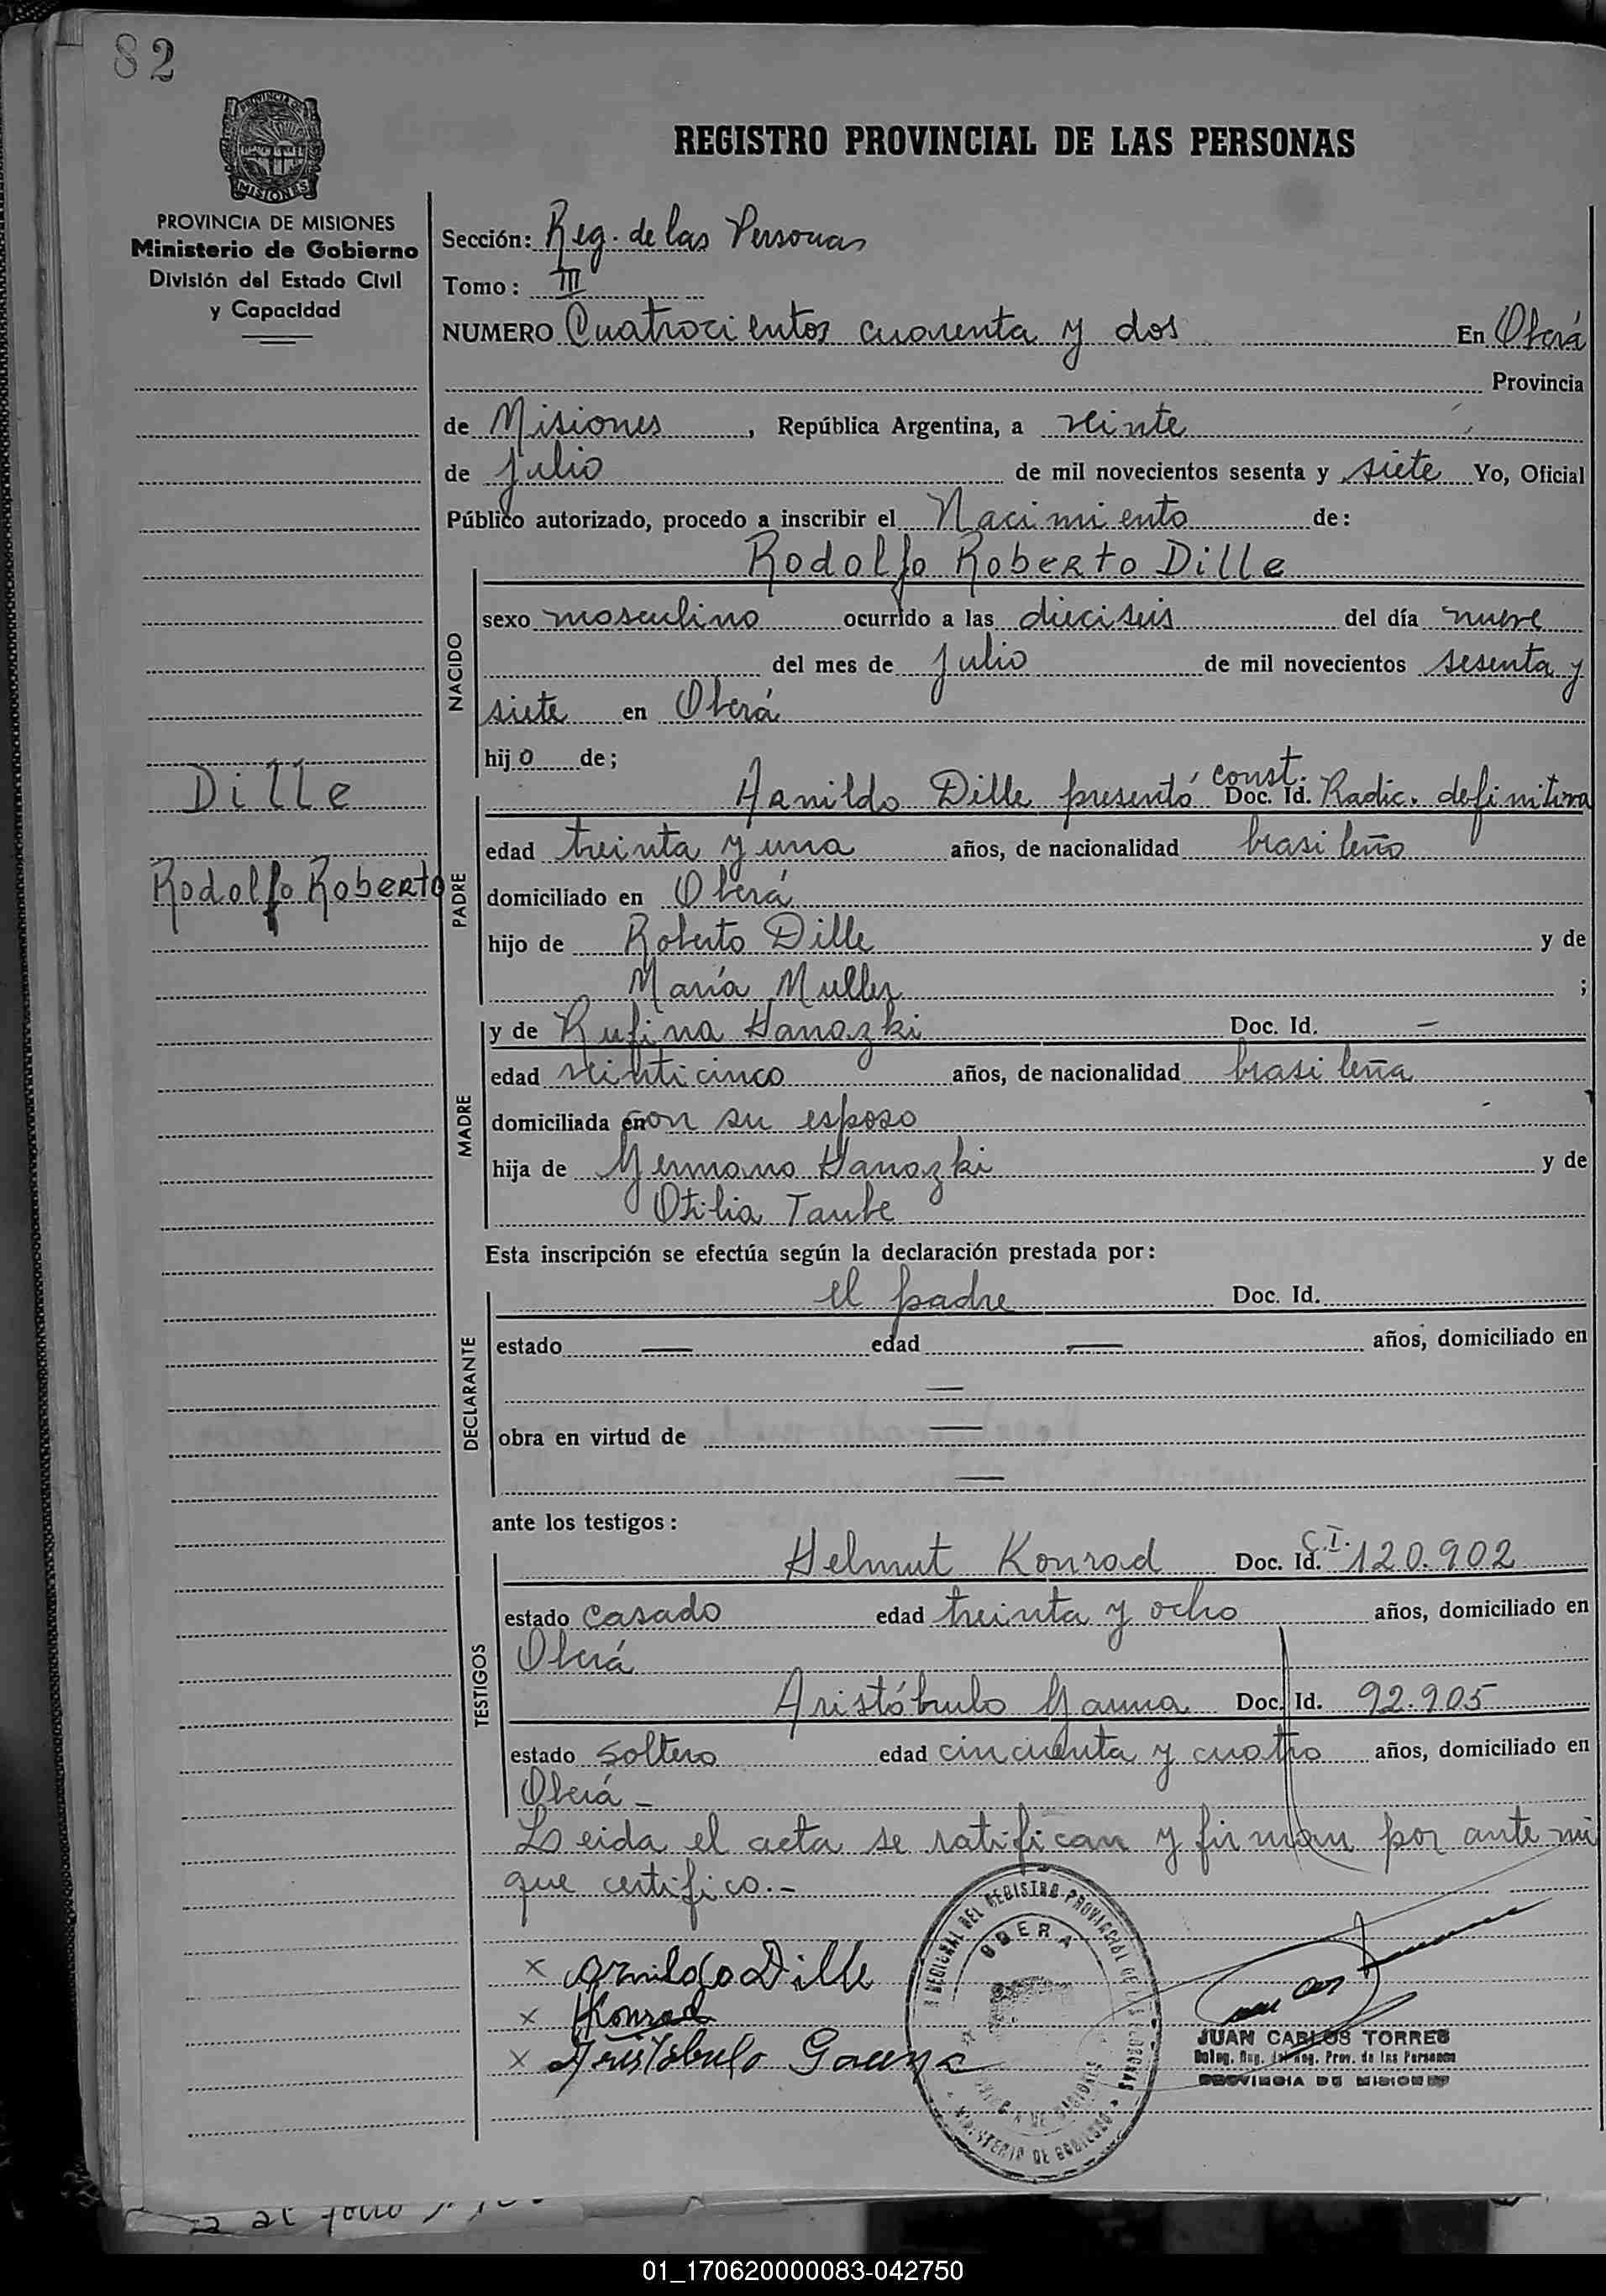 82
REGISTRO PROVINCIAL DE LAS PERSONAS
PROVINCIA DE MISIONES
MISIONES
PROVINCIA DE MISIONES
Ministerio de Gobierno
División del Estado Civil
y Capacidad
Dille
Rodolfo Roberto
Sección: Reg. de las Personas
Tomo: III
NUMERO Cuatrocientos cuarenta y dos En Oberá
Provincia
de Misiones, República Argentina, a veinte
de julio de mil novecientos sesenta y siete Yo, Oficial
Público autorizado, procedo a inscribir el Nacimiento de:
Rodolfo Roberto Dille
NACIDO
sexo masculino ocurrido a las dieciseis del día nueve
del mes de julio de mil novecientos sesenta y
siete en Oberá
hijo de;
PADRE
Arnildo Dille presentó const. Doc. Id. Radic. definitiva
edad treinta y uno años, de nacionalidad brasileño
domiciliado en Oberá
hijo de Roberto Dille y de
María Muller ;
MADRE
y de Rufina Hanazki Doc. Id. —
edad veinticinco años, de nacionalidad brasileña
domiciliada en con su esposo
hija de Germano Hanazki y de
Otilia Taube
Esta inscripción se efectúa según la declaración prestada por:
DECLARANTE
el padre Doc. Id.
estado — edad — años, domiciliado en
—
obra en virtud de —
—
ante los testigos:
TESTIGOS
Helmut Konrad Doc. Id. C.I. 120.902
estado casado edad treinta y ocho años, domiciliado en
Oberá
Aristóbulo Gauna Doc. Id. 92.905
estado soltero edad cincuenta y cuatro años, domiciliado en
Oberá -
Leida el acta se ratifican y firman por ante mi
que certifico.-
x Arnildo Dille
x HKonrad
x Aristóbulo Gauna
REGIONAL DEL REGISTRO PROVINCIAL DE LAS PERSONAS
OBERA
MINISTERIO DE GOBIERNO
JUAN CARLOS TORRES
Deleg. Reg. del Reg. Prov. de las Personas
PROVINCIA DE MISIONES
01_170620000083-042750